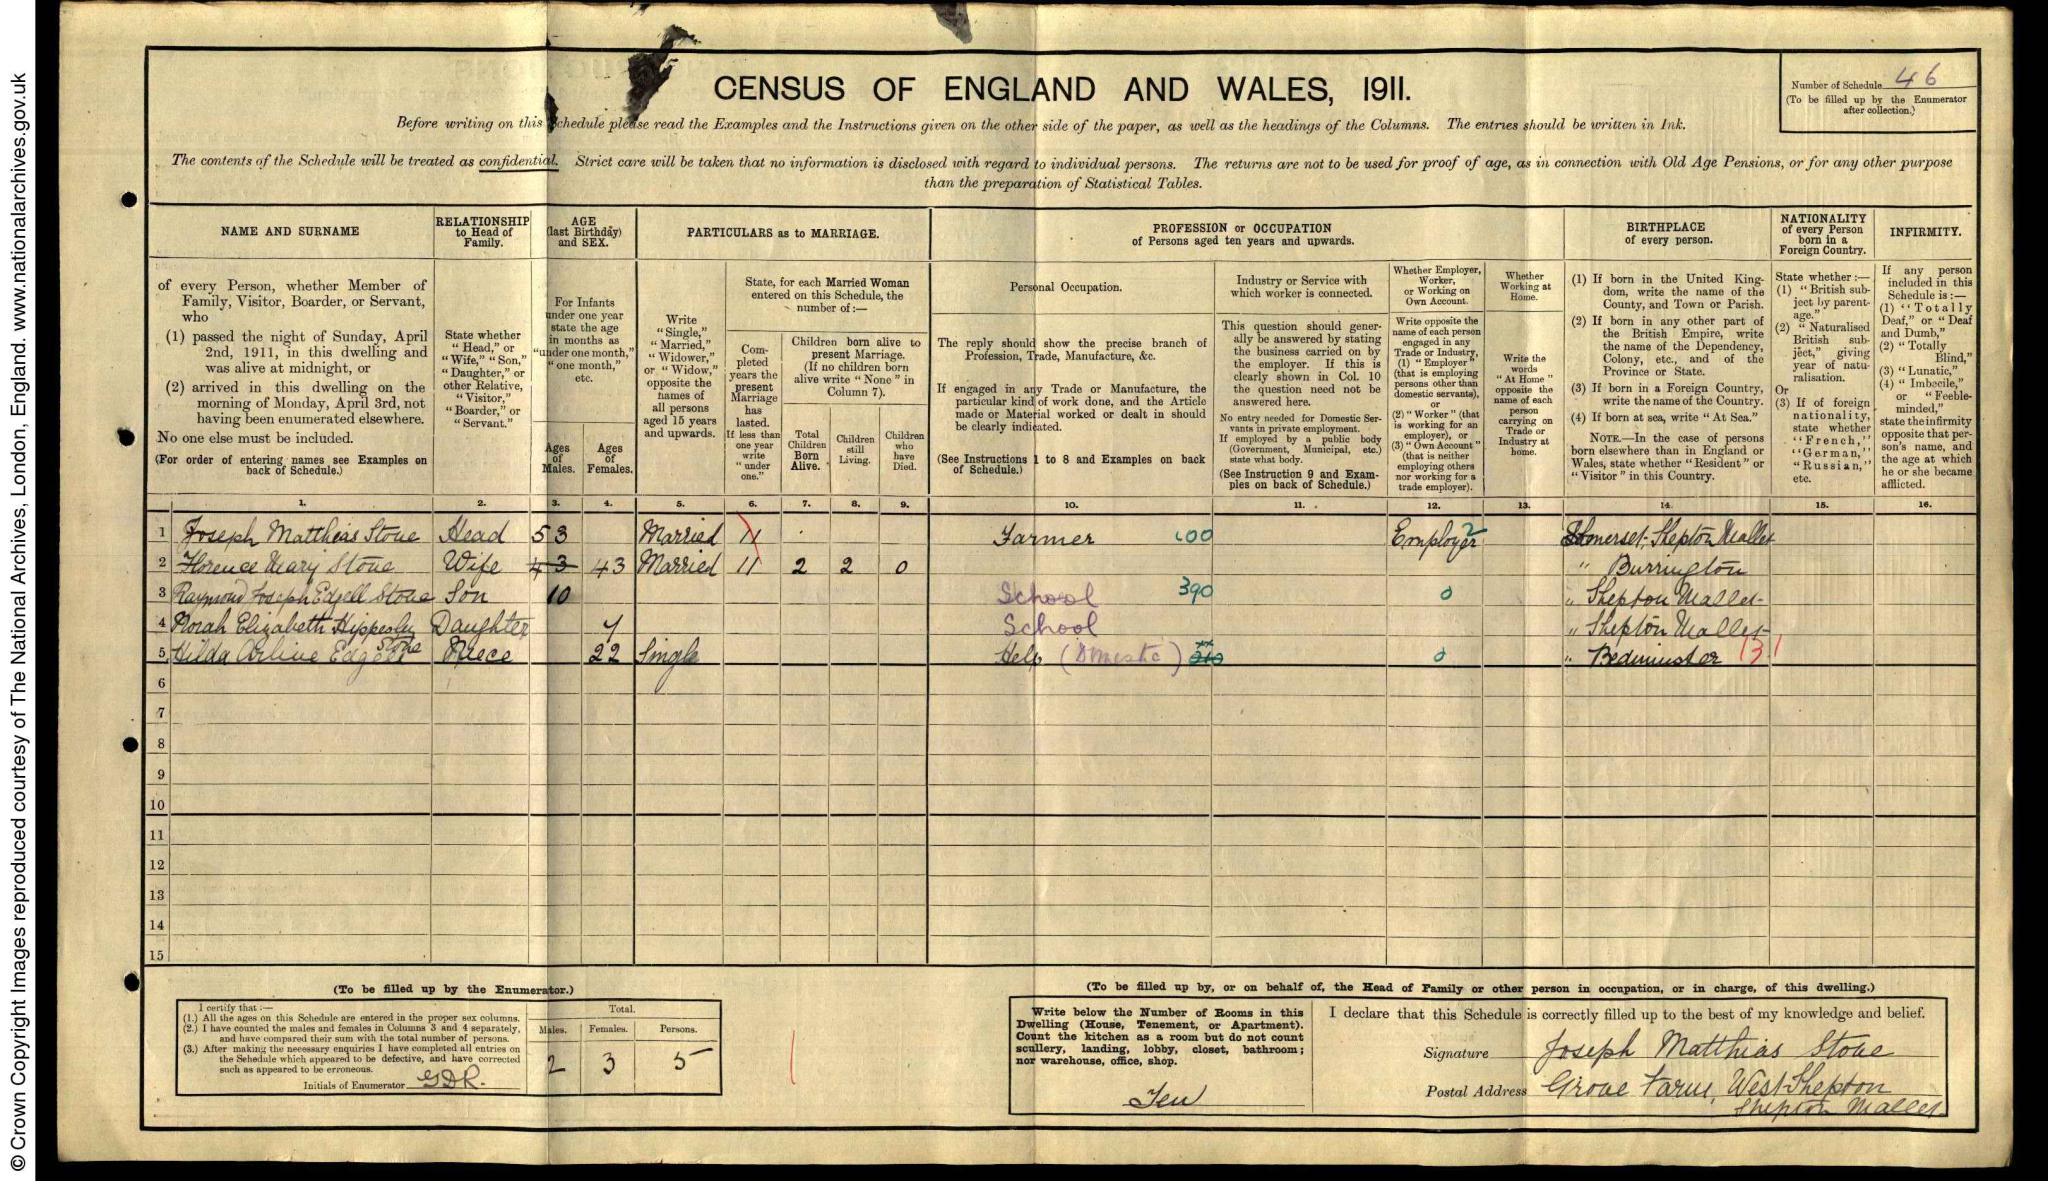 © Crown Copyright Images reproduced courtesy of The National Archives, London, England. www.nationalarchives.gov.uk
CENSUS OF ENGLAND AND WALES, 1911.
Number of Schedule 46
(To be filled up by the Enumerator
after collection.)
Before writing on this Schedule please read the Examples and the Instructions given on the other side of the paper, as well as the headings of the Columns. The entries should be written in Ink.
The contents of the Schedule will be treated as confidential. Strict care will be taken that no information is disclosed with regard to individual persons. The returns are not to be used for proof of age, as in connection with Old Age Pensions, or for any other purpose
than the preparation of Statistical Tables.
NAME AND SURNAME
of every Person, whether Member of
Family, Visitor, Boarder, or Servant,
who
(1) passed the night of Sunday, April
2nd, 1911, in this dwelling and
was alive at midnight, or
(2) arrived in this dwelling on the
morning of Monday, April 3rd, not
having been enumerated elsewhere.
No one else must be included.
(For order of entering names see Examples on
back of Schedule.)
RELATIONSHIP
to Head of
Family.
State whether
"Head," or
"Wife," "Son,"
"Daughter," or
other Relative,
"Visitor,"
"Boarder," or
"Servant."
AGE
(last Birthday)
and SEX.
For Infants
under one year
state the age
in months as
"under one month,"
"one month,"
etc.
Ages
of
Males.
Ages
of
Females.
PARTICULARS as to MARRIAGE.
Write
"Single,"
"Married,"
"Widower,"
or "Widow,"
opposite the
names of
all persons
aged 15 years
and upwards.
State, for each Married Woman
entered on this Schedule, the
number of:—
Com-
pleted
years the
present
Marriage
has
lasted.
If less than
one year
write
"under
one."
Children born alive to
present Marriage.
(If no children born
alive write "None" in
Column 7).
Total
Children
Born
Alive.
Children
still
Living.
Children
who
have
Died.
PROFESSION or OCCUPATION
of Persons aged ten years and upwards.
Personal Occupation.
The reply should show the precise branch of
Profession, Trade, Manufacture, &c.
If engaged in any Trade or Manufacture, the
particular kind of work done, and the Article
made or Material worked or dealt in should
be clearly indicated.
(See Instructions 1 to 8 and Examples on back
of Schedule.)
Industry or Service with
which worker is connected.
This question should gener-
ally be answered by stating
the business carried on by
the employer. If this is
clearly shown in Col. 10
the question need not be
answered here.
No entry needed for Domestic Ser-
vants in private employment.
If employed by a public body
(Government, Municipal, etc.)
state what body.
(See Instruction 9 and Exam-
ples on back of Schedule.)
Whether Employer,
Worker,
or Working on
Own Account.
Write opposite the
name of each person
engaged in any
Trade or Industry,
(1) "Employer"
(that is employing
persons other than
domestic servants),
or
(2) "Worker" (that
is working for an
employer), or
(3) "Own Account"
(that is neither
employing others
nor working for a
trade employer).
Whether
Working at
Home.
Write the
words
"At Home"
opposite the
name of each
person
carrying on
Trade or
Industry at
home.
BIRTHPLACE
of every person.
(1) If born in the United King-
dom, write the name of the
County, and Town or Parish.
(2) If born in any other part of
the British Empire, write
the name of the Dependency,
Colony, etc., and of the
Province or State.
(3) If born in a Foreign Country,
write the name of the Country.
(4) If born at sea, write "At Sea."
NOTE.—In the case of persons
born elsewhere than in England or
Wales, state whether "Resident" or
"Visitor" in this Country.
NATIONALITY
of every Person
born in a
Foreign Country.
State whether:—
(1) "British sub-
ject by parent-
age."
(2) "Naturalised
British sub-
ject," giving
year of natu-
ralisation.
Or
(3) If of foreign
nationality,
state whether
"French,"
"German,"
"Russian,"
etc.
INFIRMITY.
If any person
included in this
Schedule is:—
(1) "Totally
Deaf," or "Deaf
and Dumb,"
(2) "Totally
Blind,"
(3) "Lunatic,"
(4) "Imbecile,"
or "Feeble-
minded,"
state the infirmity
opposite that per-
son's name, and
the age at which
he or she became
afflicted.
1. 2. 3. 4. 5. 6. 7. 8. 9. 10. 11. 12. 13. 14. 15. 16.
1 Joseph Matthias Stone Head 53 Married 11 Farmer 100 Employer 2 Somerset, Shepton Mallet
2 Florence Mary Stone Wife 43 43 Married 11 2 2 0 " Burrington
3 Raymond Joseph Edgell Stone Son 10 School 390 0 " Shepton Mallet
4 Norah Elizabeth Hippesley Stone Daughter 7 School " Shepton Mallet
5 Hilda Edgell Niece 22 Single Help (Domestic) 0 " Bedminster 131
6
7
8
9
10
11
12
13
14
15
(To be filled up by the Enumerator.)
I certify that:—
(1.) All the ages on this Schedule are entered in the proper sex columns.
(2.) I have counted the males and females in Columns 3 and 4 separately,
and have compared their sum with the total number of persons.
(3.) After making the necessary enquiries I have completed all entries on
the Schedule which appeared to be defective, and have corrected
such as appeared to be erroneous.
Initials of Enumerator GDR.
Total.
Males. Females. Persons.
2 3 5
(To be filled up by, or on behalf of, the Head of Family or other person in occupation, or in charge, of this dwelling.)
Write below the Number of Rooms in this
Dwelling (House, Tenement, or Apartment).
Count the kitchen as a room but do not count
scullery, landing, lobby, closet, bathroom;
nor warehouse, office, shop.
Ten
I declare that this Schedule is correctly filled up to the best of my knowledge and belief.
Signature Joseph Matthias Stone
Postal Address Grove Farm, West Shepton
Shepton Mallet